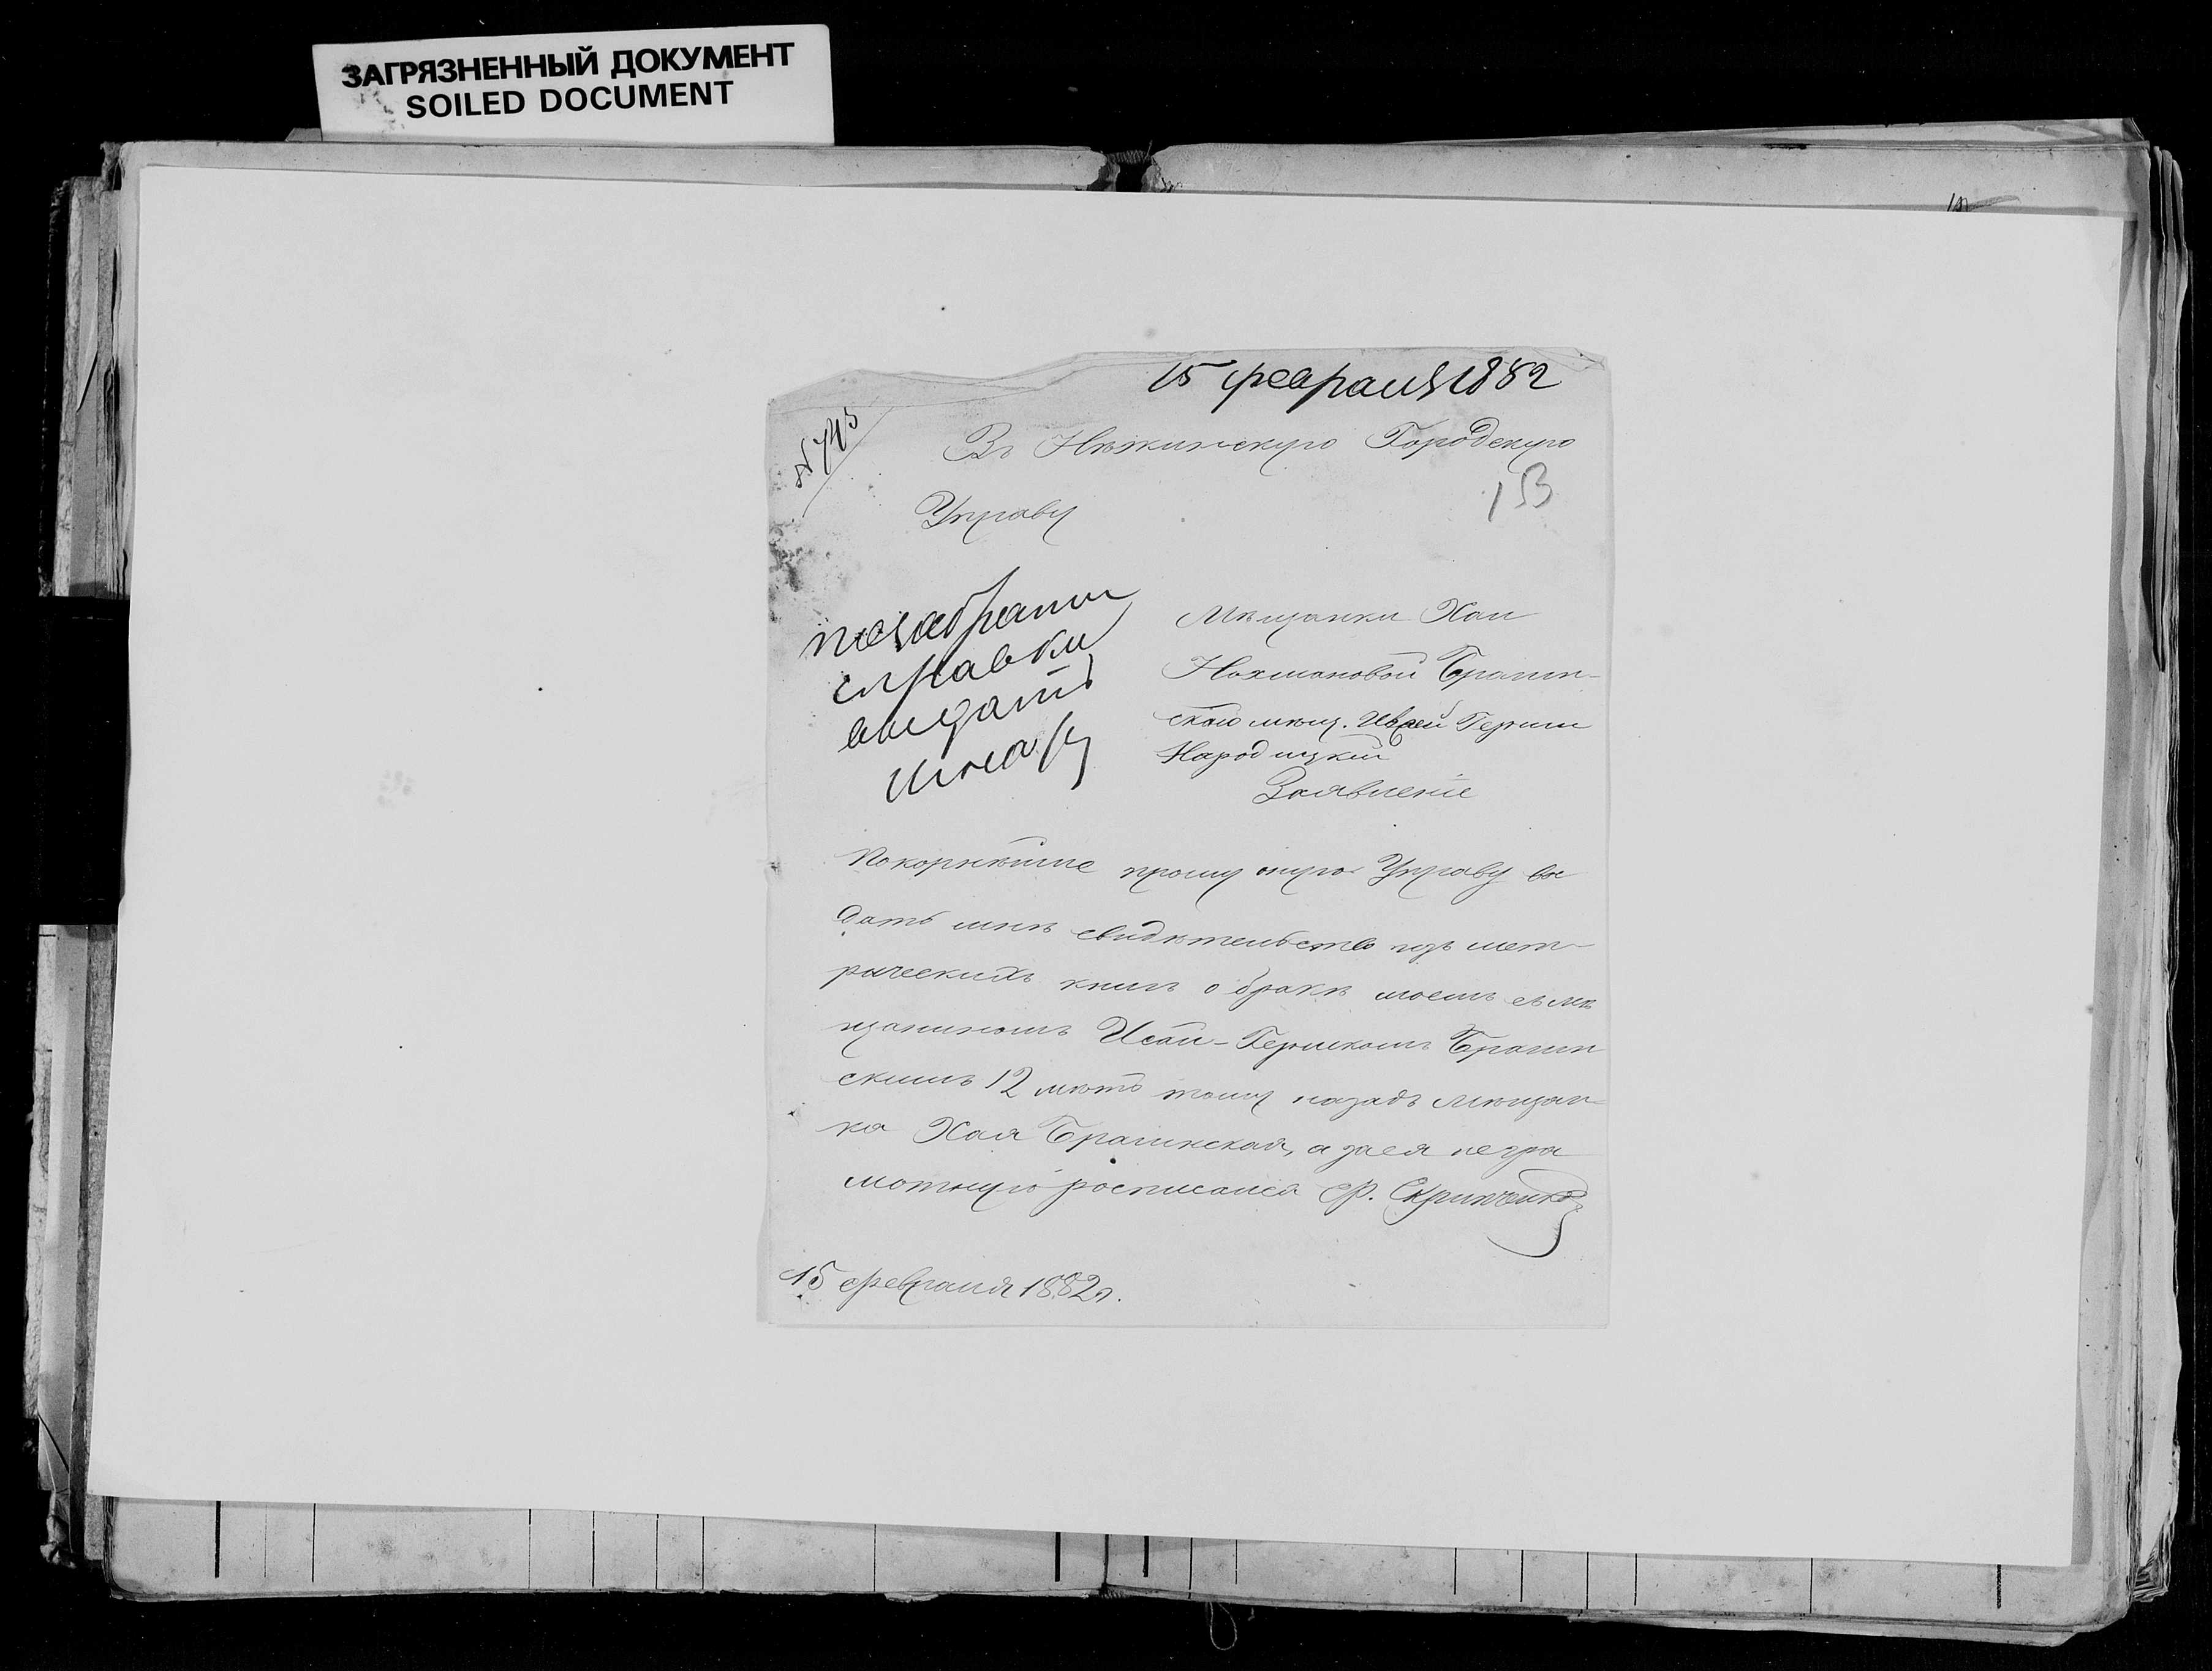 ЗАГРЯЗНЕННЫЙ ДОКУМЕНТ
SOILED DOCUMENT
15 февраля 1882
№ 743
Въ Нѣжинскую Городскую
153
Управу
справки
выдать
Мѣщанки Хаи
Нохмановой Брагин-
ской мѣщ. Герши
Народицкій
Заявленіе
Покорнѣйше прошу оную Управу вы
дать мнѣ свидѣтельство изъ мет-
рическихъ книгъ о бракѣ моемъ съ мѣ
щаниномъ Исай-Гершкомъ Брагин
скимъ 12 лѣтъ тому назадъ мѣщан-
ка Хая Брагинская, а за ея негра
мотную росписался Ф. Скрипченко
15 февраля 1882 г.